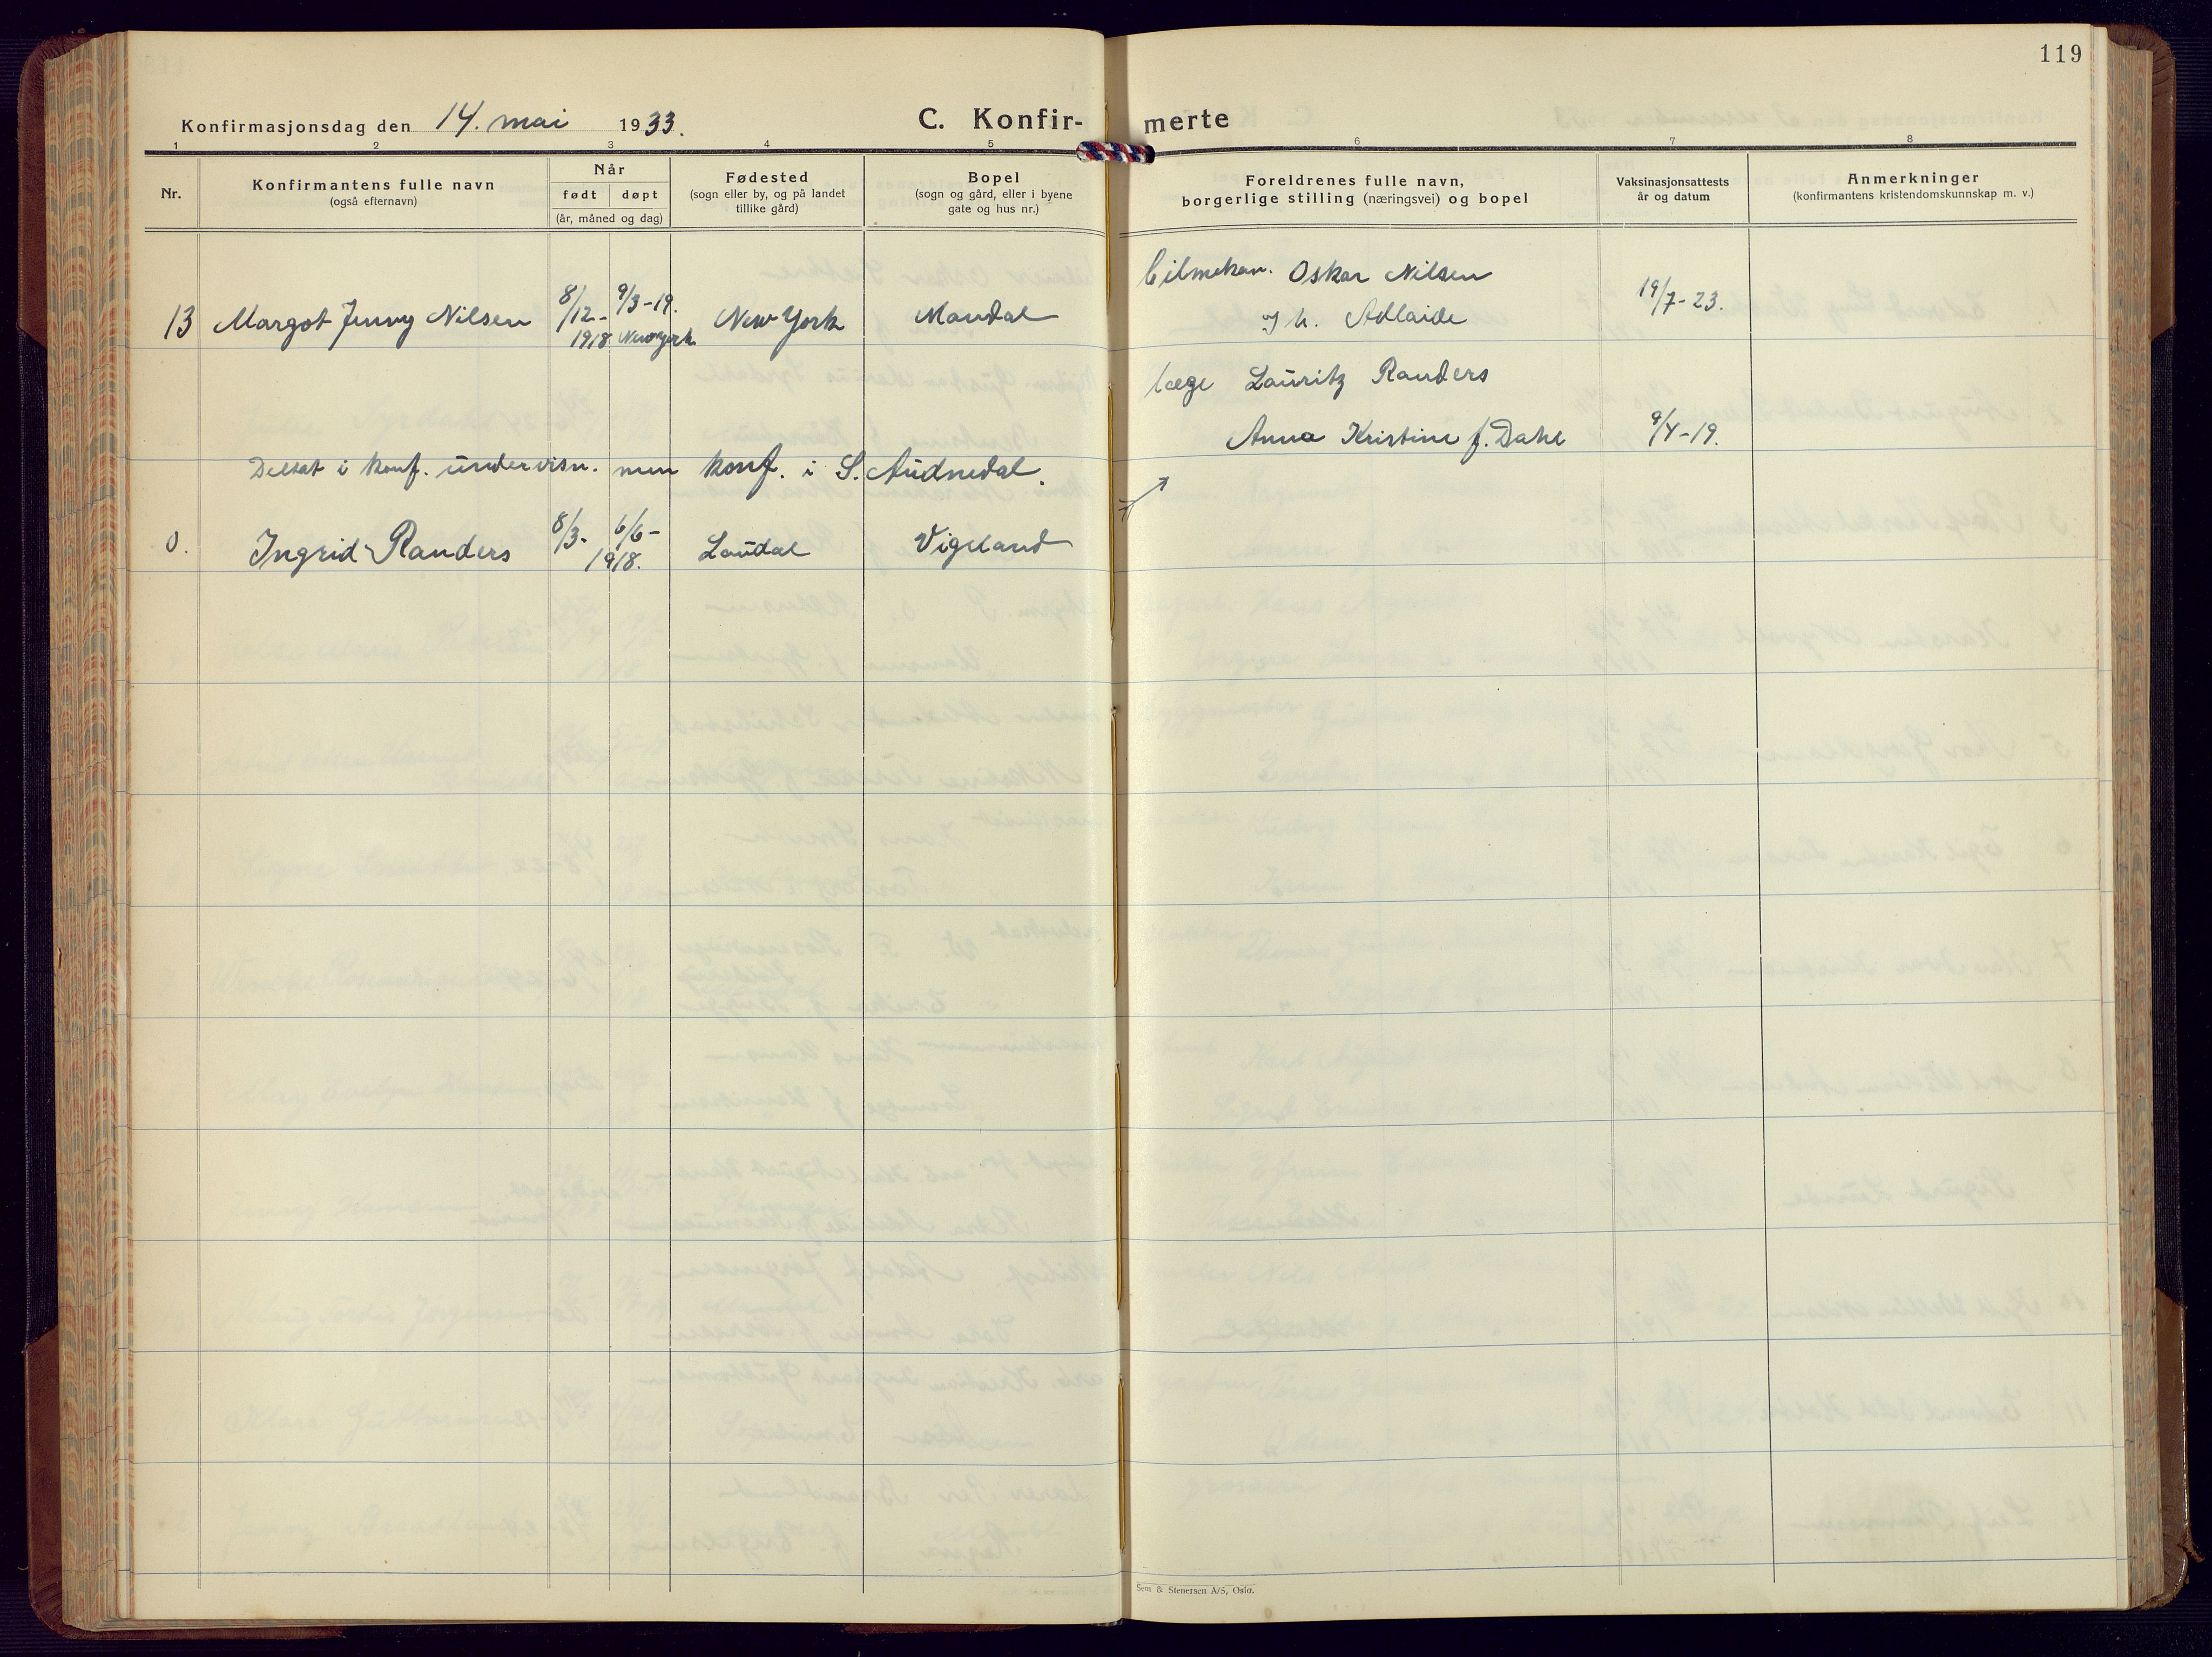 119
Konfirmasjonsdag den 14. mai 1933.
C. Konfir-merte
1 2 3 4 5 6 7 8
Nr.
Konfirmantens fulle navn
(også efternavn)
Når
født døpt
(år, måned og dag)
Fødested
(sogn eller by, og på landet
tillike gård)
Bopel
(sogn og gård, eller i byene
gate og hus nr.)
Foreldrenes fulle navn,
borgerlige stilling (næringsvei) og bopel
Vaksinasjonsattests
år og datum
Anmerkninger
(konfirmantens kristendomskunnskap m. v.)
Bilmekan. Oskar Nilsen
13 Margot Jenny Nilsen 8/12- 1918 9/3-19. New York New York Mandal
Adlaide
19/7-23.
læge Lauritz Randers
Anna Kristine f. Dahl 9/4-19.
Deltat i konf. undervisn. men konf. i S. Audnedal.
0. Ingrid Randers 8/3- 6/6- 1918. Laudal Vigeland
Sem & Stenersen A/S, Oslo.